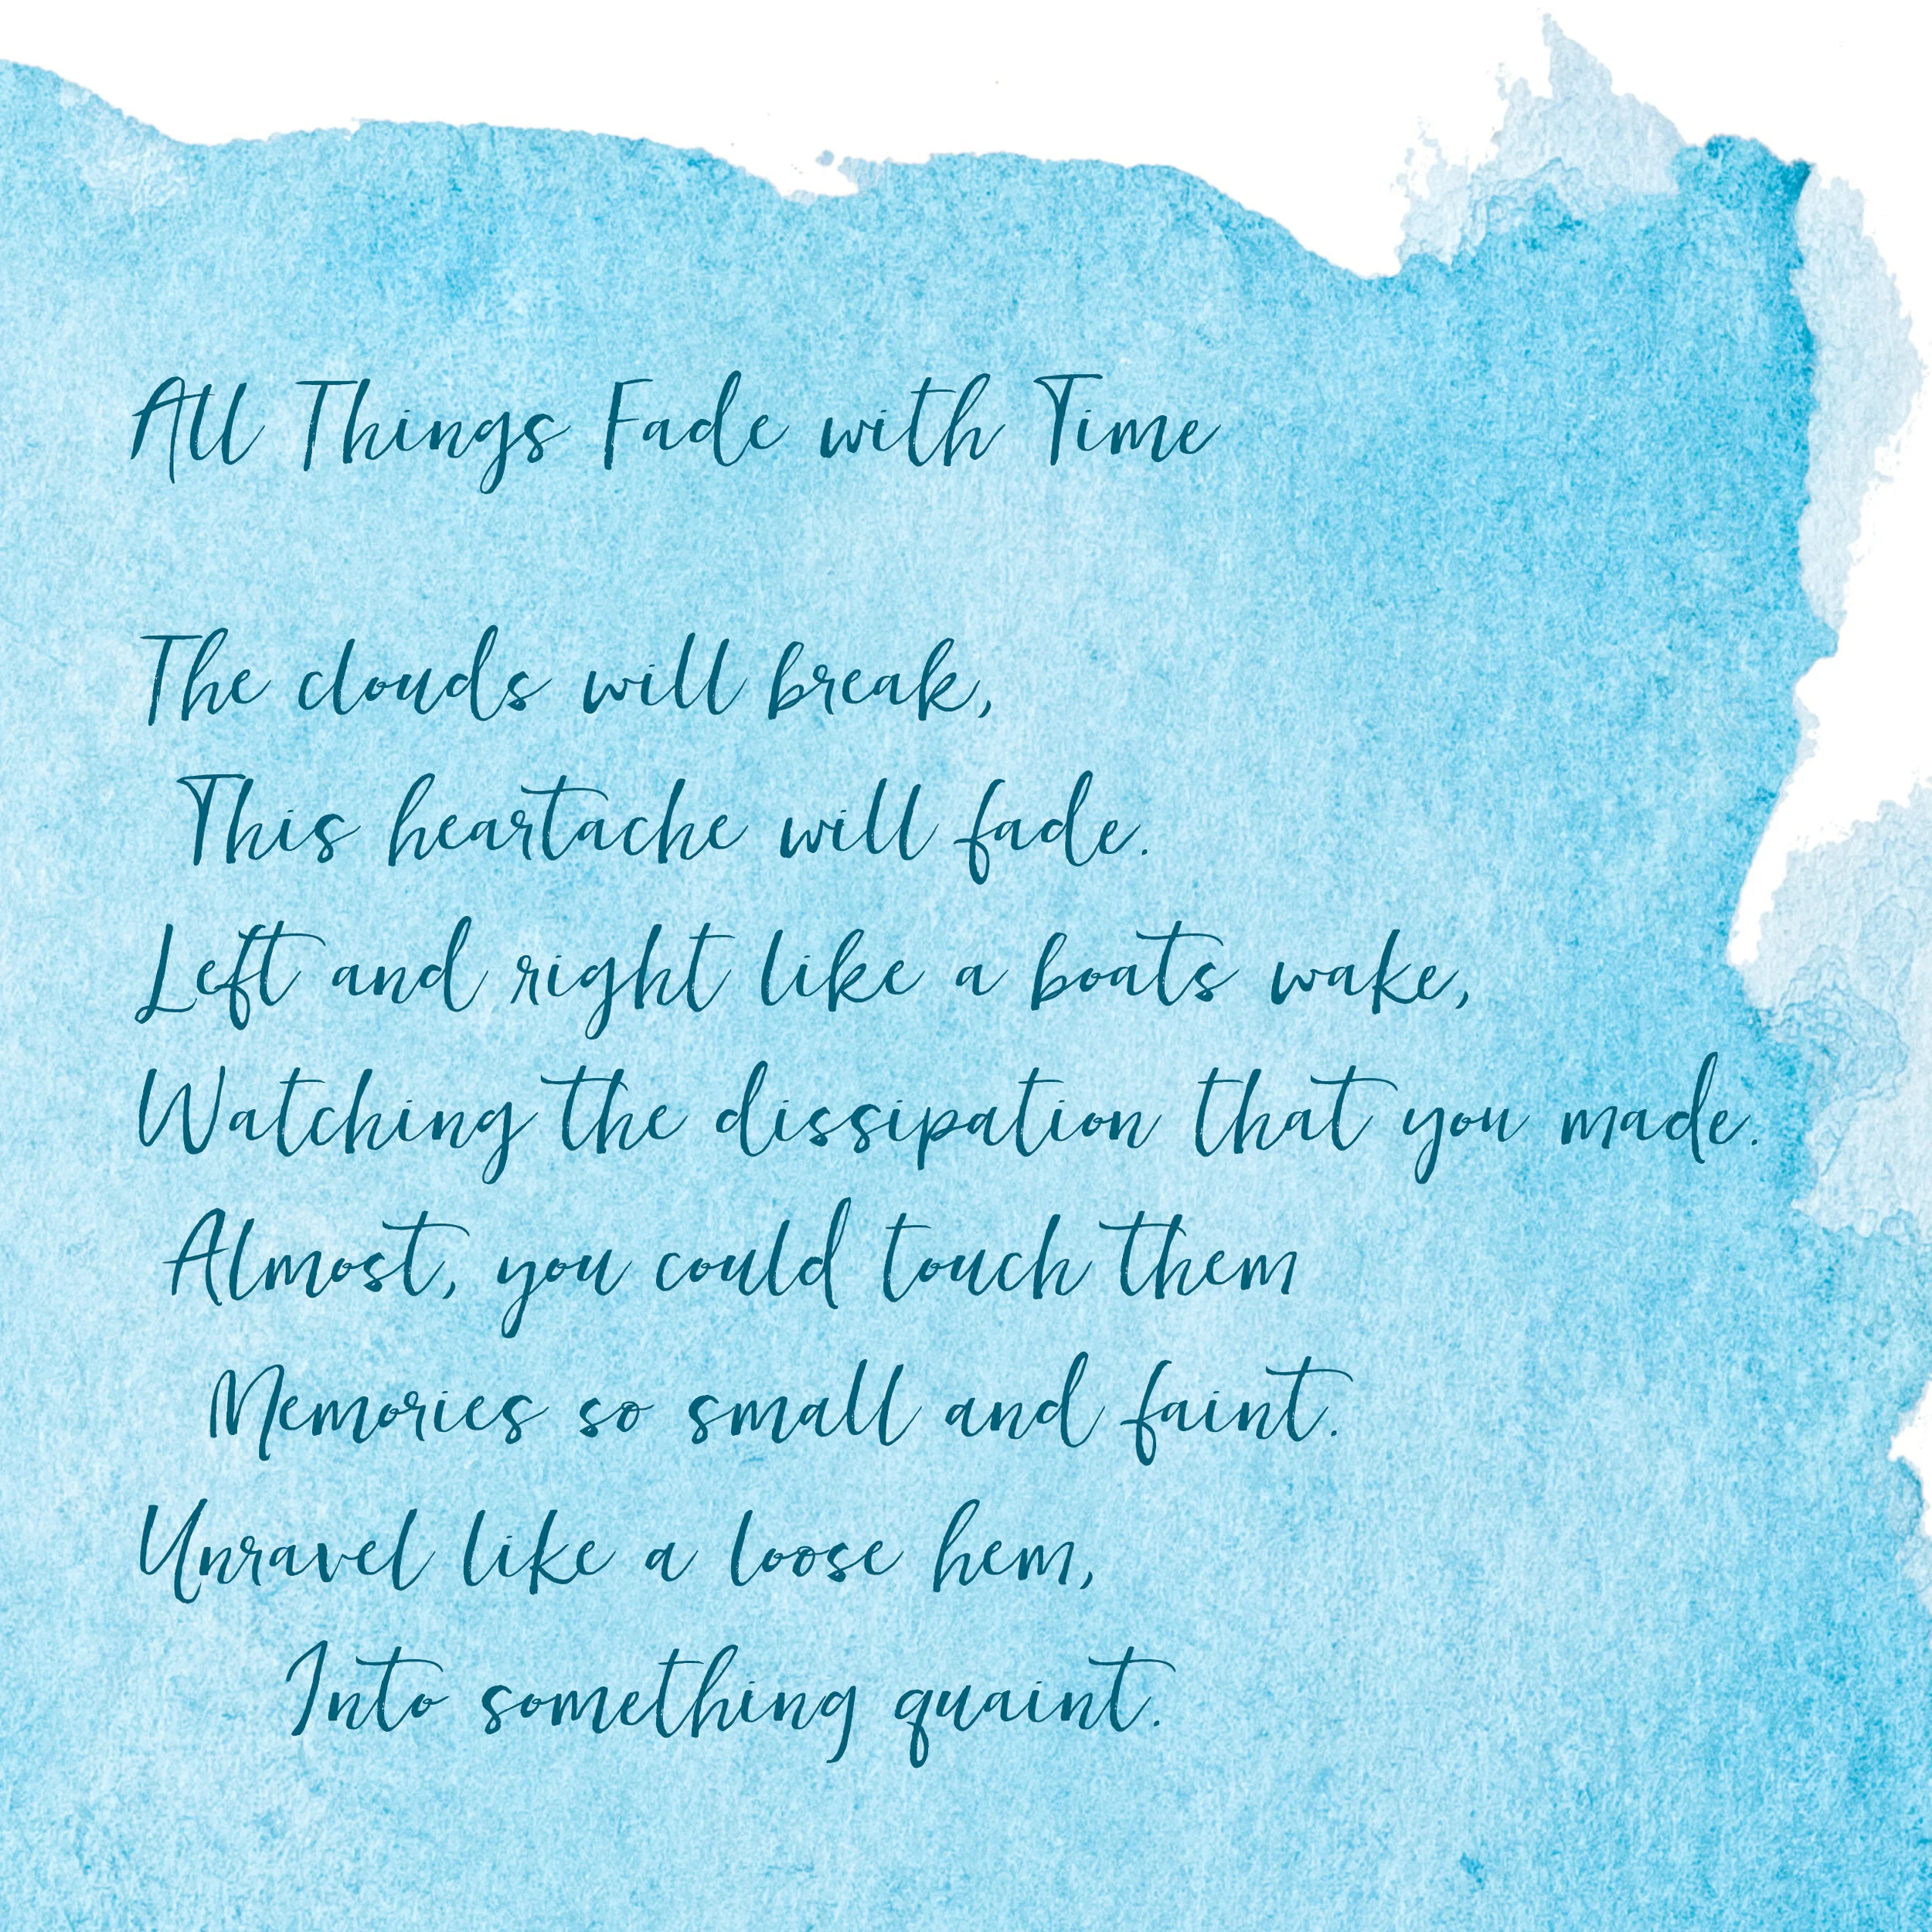 All Things Fade with Time
The clouds will break,
This heartache will fade.
Left and right like a boats wake,
Watching the dissipation that you made.
Almost, you could touch them
Memories so small and faint.
Unravel like a loose hem,
Into something quaint.